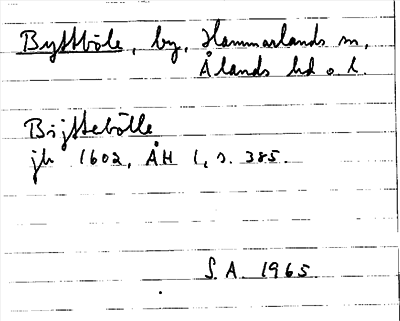 Byttböle, by, Hammarlands sn,
Ålands hd o. l.
Bijttebölle
jb 1602, ÅH 1, s. 385.
S.A. 1965